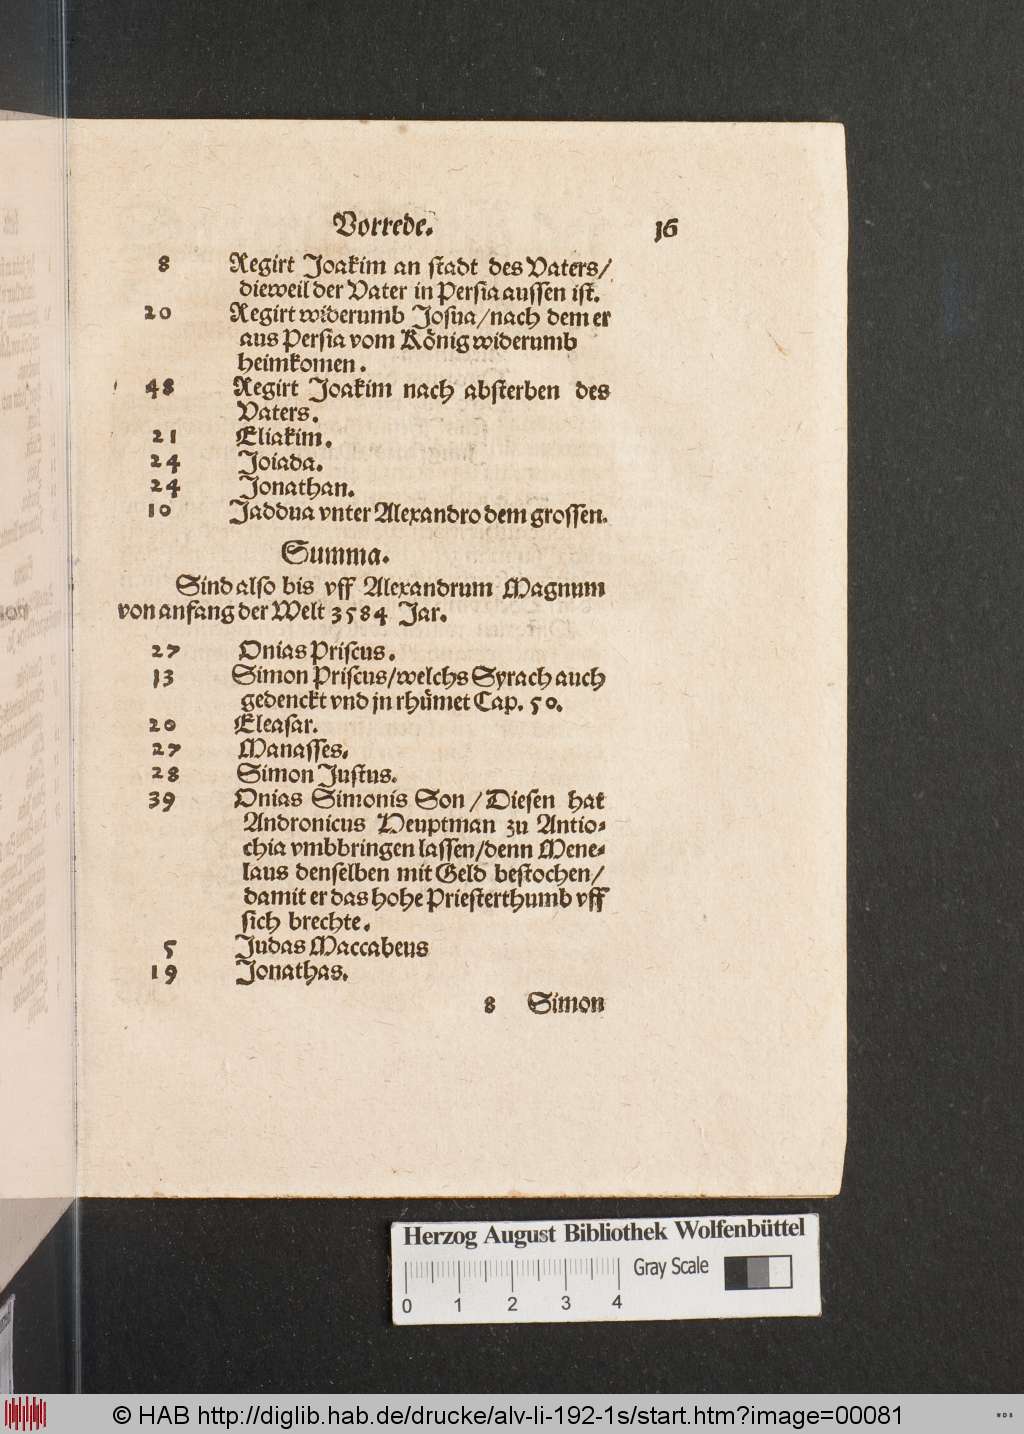 Vorrede. 16
8 Regirt Joakim an stadt des Vaters/
dieweil der Vater in Persia aussen ist.
20 Regirt widerumb Josua/nach dem er
aus Persia vom König widerumb
heimkomen.
48 Regirt Joakim nach absterben des
Vaters.
21 Eliakim.
24 Joiada.
24 Jonathan.
10 Jaddua vnter Alexandro dem grossen.
Summa.
Sind also bis vff Alexandrum Magnum
von anfang der Welt 3584 Jar.
27 Onias Priscus.
13 Simon Priscus/welchs Syrach auch
gedenckt vnd jn rhümet Cap. 50.
20 Eleasar.
27 Manasses.
28 Simon Justus.
39 Onias Simonis Son/Diesen hat
Andronicus Heuptman zu Antio-
chia vmbbringen lassen/denn Mene-
laus denselben mit Geld bestochen/
damit er das hohe Priesterthumb vff
sich brechte.
5 Judas Maccabeus
19 Jonathas.
8 Simon
Herzog August Bibliothek Wolfenbüttel
Gray Scale
0 1 2 3 4
© HAB http://diglib.hab.de/drucke/alv-li-192-1s/start.htm?image=00081